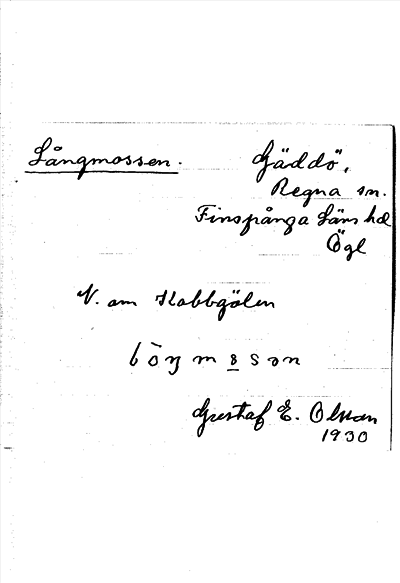 Långmossen.
Gäddö,
Regna sn.
Finspånga Läns hd
Ögl
V. om Kabbgölen
Gustaf E. Olsson
1930